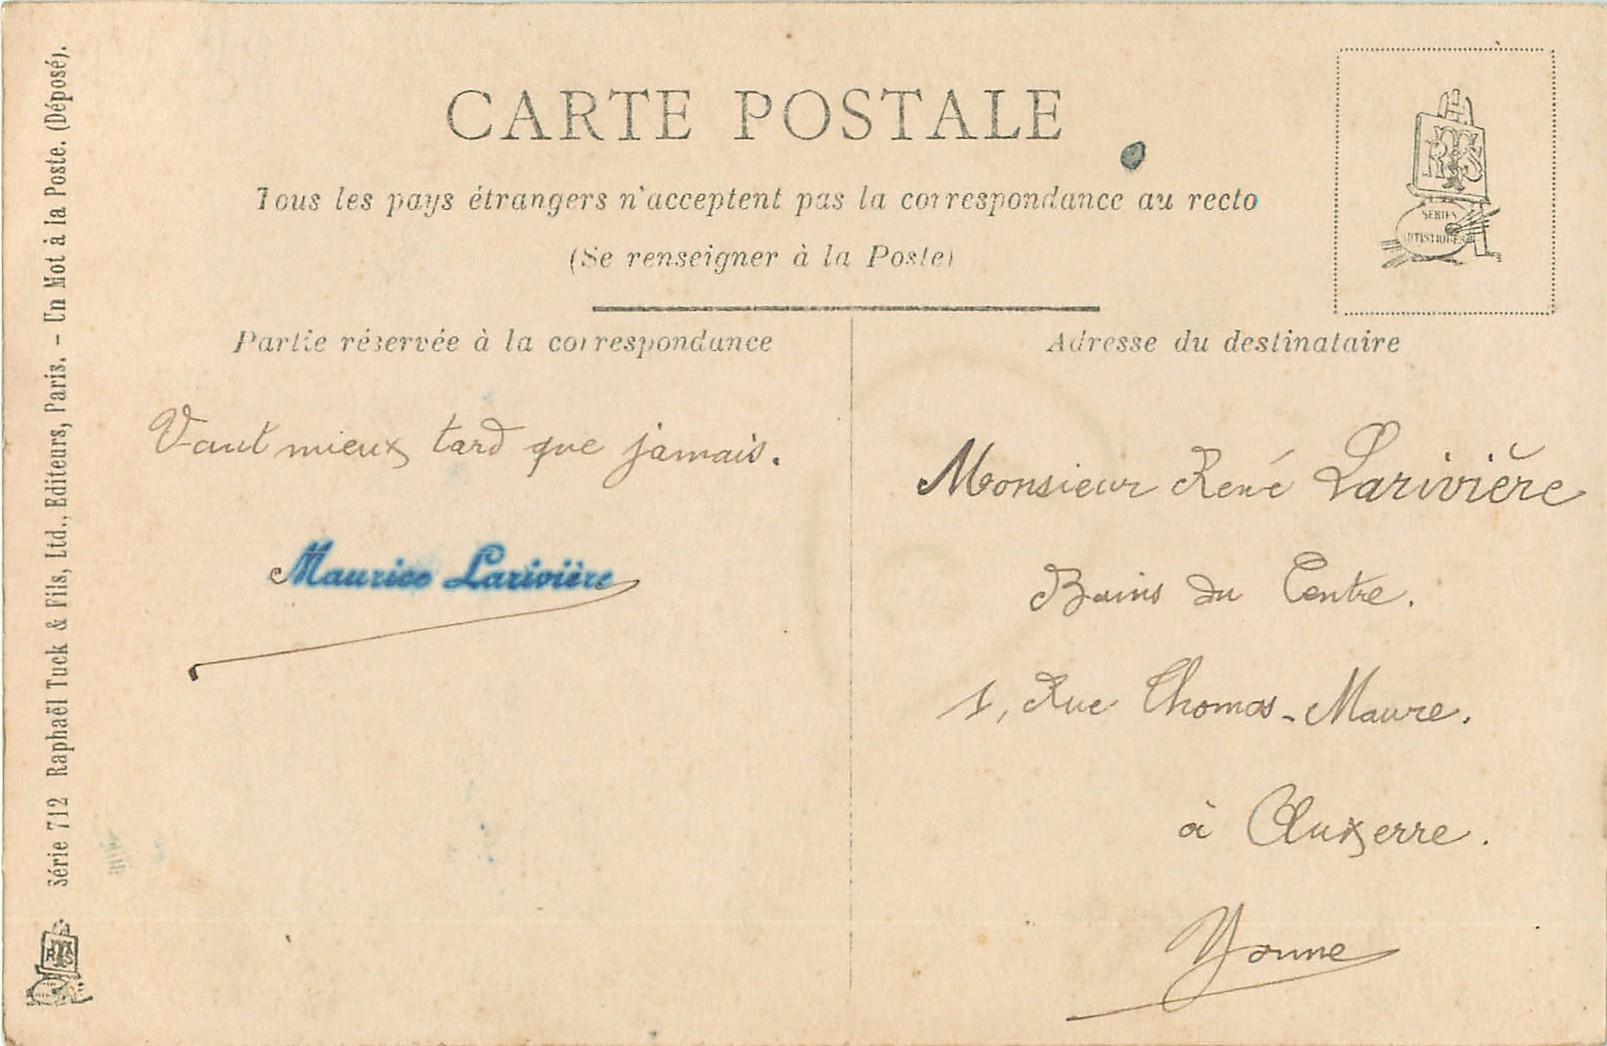 CARTE POSTALE
Tous les pays étrangers n'acceptent pas la correspondance au recto
(Se renseigner à la Poste)
RTS
SÉRIES
ARTISTIQUES
Partie réservée à la correspondance
Adresse du destinataire
Vaut mieux tard que jamais.
Maurice Larivière
Monsieur René Larivière
Bains du Centre.
1, Rue Thomas-Maure.
à Auxerre.
Yonne
Série 712 Raphaël Tuck & Fils, Ltd., Editeurs, Paris. - Un Mot à la Poste. (Déposé).
RTS